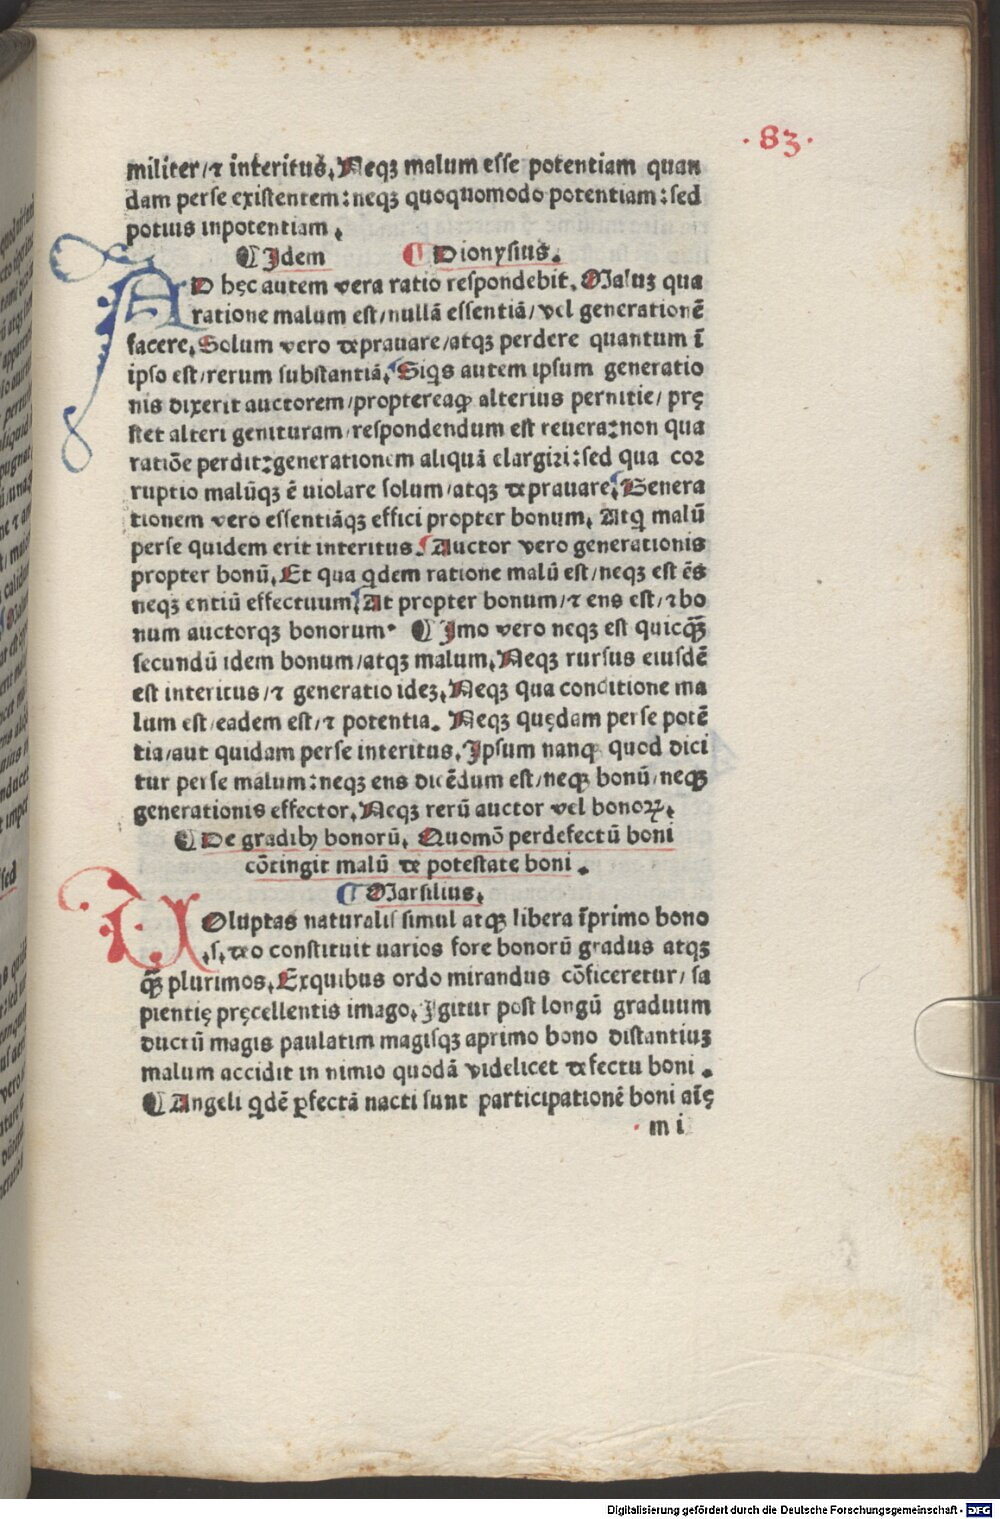 ·83·
militer/⁊ interitus. Neqꝫ malum esse potentiam quan
dam perse existentem: neqꝫ quoquomodo potentiam: sed
potius inpotentiam.
¶ Idem ¶ Dionysius.
AD hęc autem vera ratio respondebit. Maluꝫ qua
ratione malum est/nullā essentiā/vel generationē
facere. Solum vero deprauare/atqꝫ perdere quantum ī
ipso est/rerum substantiā. Siqͥs autem ipsum generatio
nis dixerit auctorem/proptereaqꝫ alterius pernitie/prę
stet alteri genituram/respondendum est reuera: non qua
ratiōe perdit: generationem aliquā elargiri: sed qua cor
ruptio malūqꝫ ē uiolare solum/atqꝫ deprauare. Genera
tionem vero essentiāqꝫ effici propter bonum. Atqꝫ malū
perse quidem erit interitus. Auctor vero generationis
propter bonū. Et qua qͥdem ratione malū est/neqꝫ est ēs
neqꝫ entiū effectuum. At propter bonum/⁊ ens est/⁊ bo
num auctorqꝫ bonorum. ¶ Imo vero neqꝫ est quicq̄ꝫ
secundū idem bonum/atqꝫ malum. Neqꝫ rursus eiusdē
est interitus/⁊ generatio ideꝫ. Neqꝫ qua conditione ma
lum est/eadem est/⁊ potentia. Neqꝫ quędam perse potē
tia/aut quidam perse interitus. Ipsum nanqꝫ quod dici
tur perse malum: neqꝫ ens dicēdum est/neqꝫ bonū/neqꝫ
generationis effector. Neqꝫ rerū auctor vel bonoꝝ.
¶ De gradibꝫ bonorū. Quomō perdefectū boni
cōtingit malū de potestate boni.
¶ Marsilius.
VOluptas naturalis simul atqꝫ libera īprimo bono
.s. deo constituit uarios fore bonorū gradus atqꝫ
q̄ꝫ plurimos. Exquibus ordo mirandus cōficeretur/sa
pientię pręcellentis imago. Igitur post longū graduum
ductū magis paulatim magisqꝫ aprimo bono distantiuꝫ
malum accidit in nimio quodā videlicet defectu boni.
¶ Angeli qͥdē ꝑfectā nacti sunt participationē boni aīę
m i
Digitalisierung gefördert durch die Deutsche Forschungsgemeinschaft - DFG